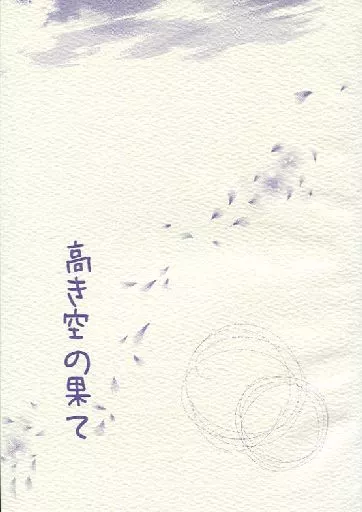 高き空の果て